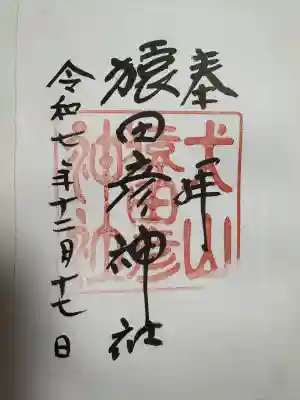 奉拝
猿田彦神社
令和七年十二月十七日
犬山
猿田彦
神社